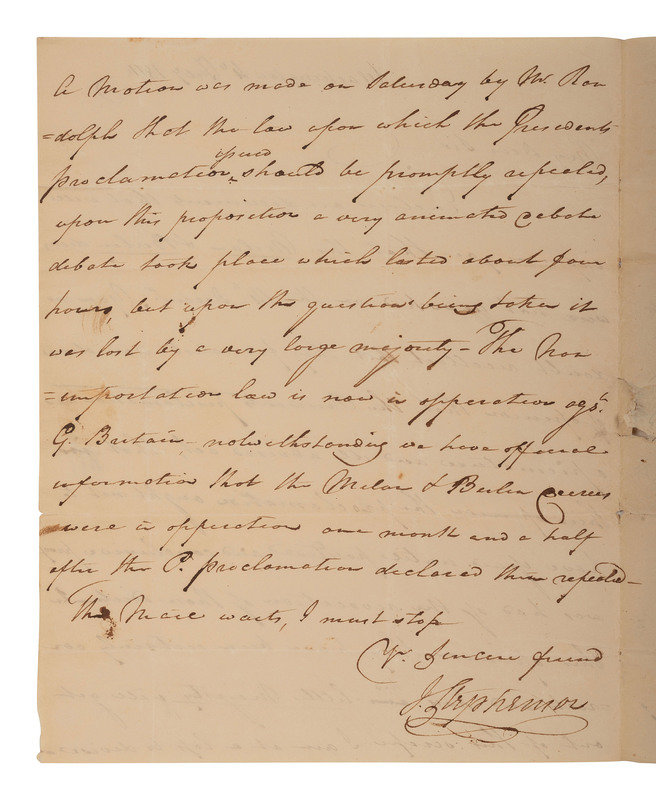 A Motion was made on Saturday by Mr. Ran
=dolph that the law upon which the Presidents
issued
proclamation ^ should be promptly repealed,
upon this proposition a very animated debate
debate took place which lasted about four
hours, but upon the question being taken it
was lost by a very large majority - The Non
=importation law is now in opperation agst.
G. Britain, notwithstanding we have official
information that the Milan & Berlin Decrees
were in opperation one month and a half
after the P. proclamation declared them repealed -
The Mail waits, I must stop
Yr. Sincere friend
J. Stephenson